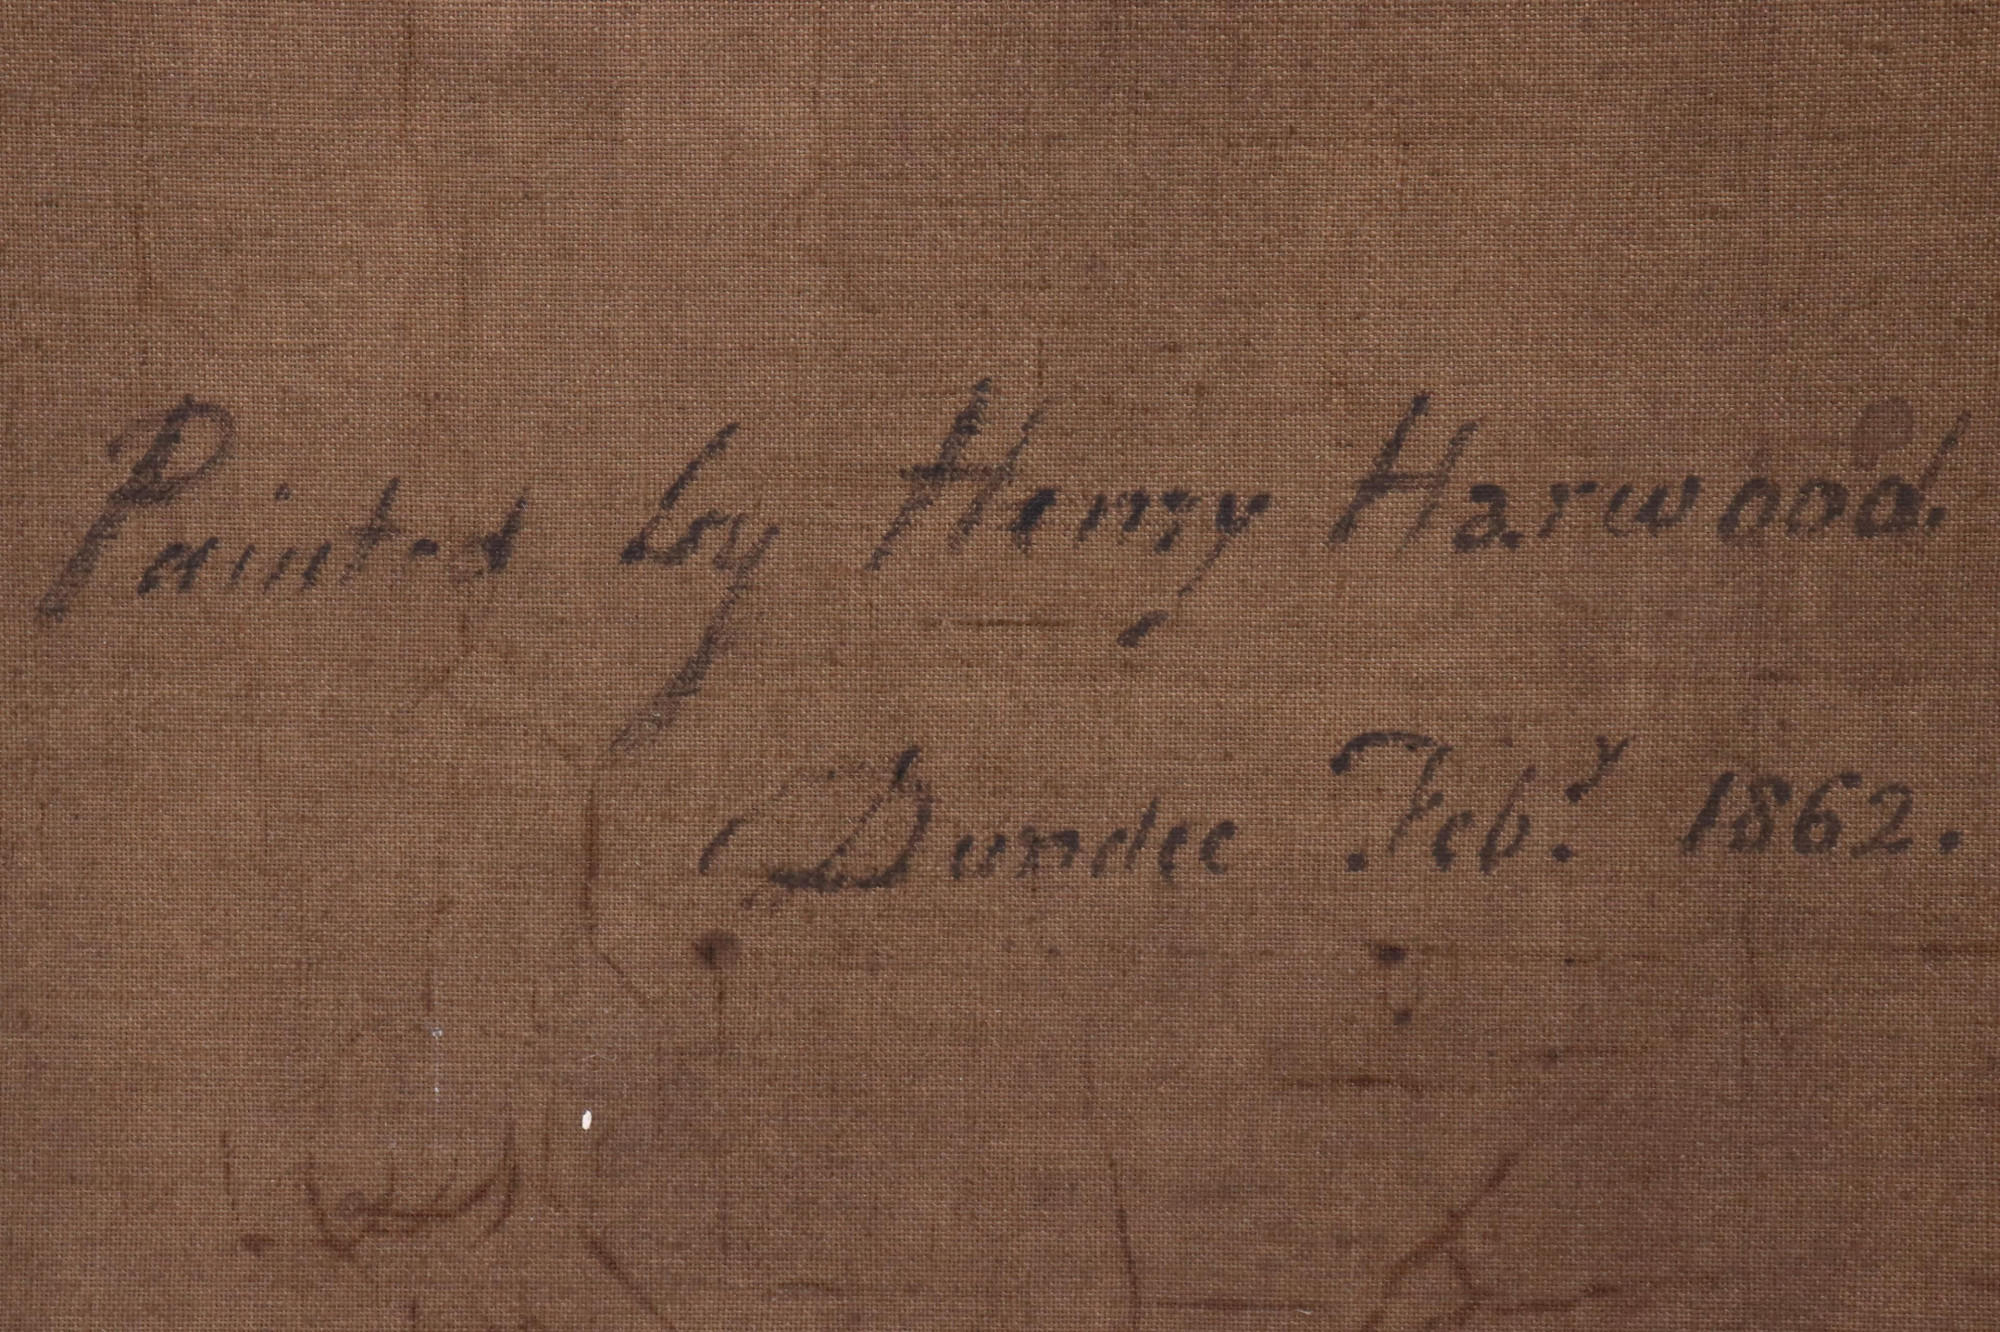 Painted by Henry Harwood.
Dundee Feb.y 1862.